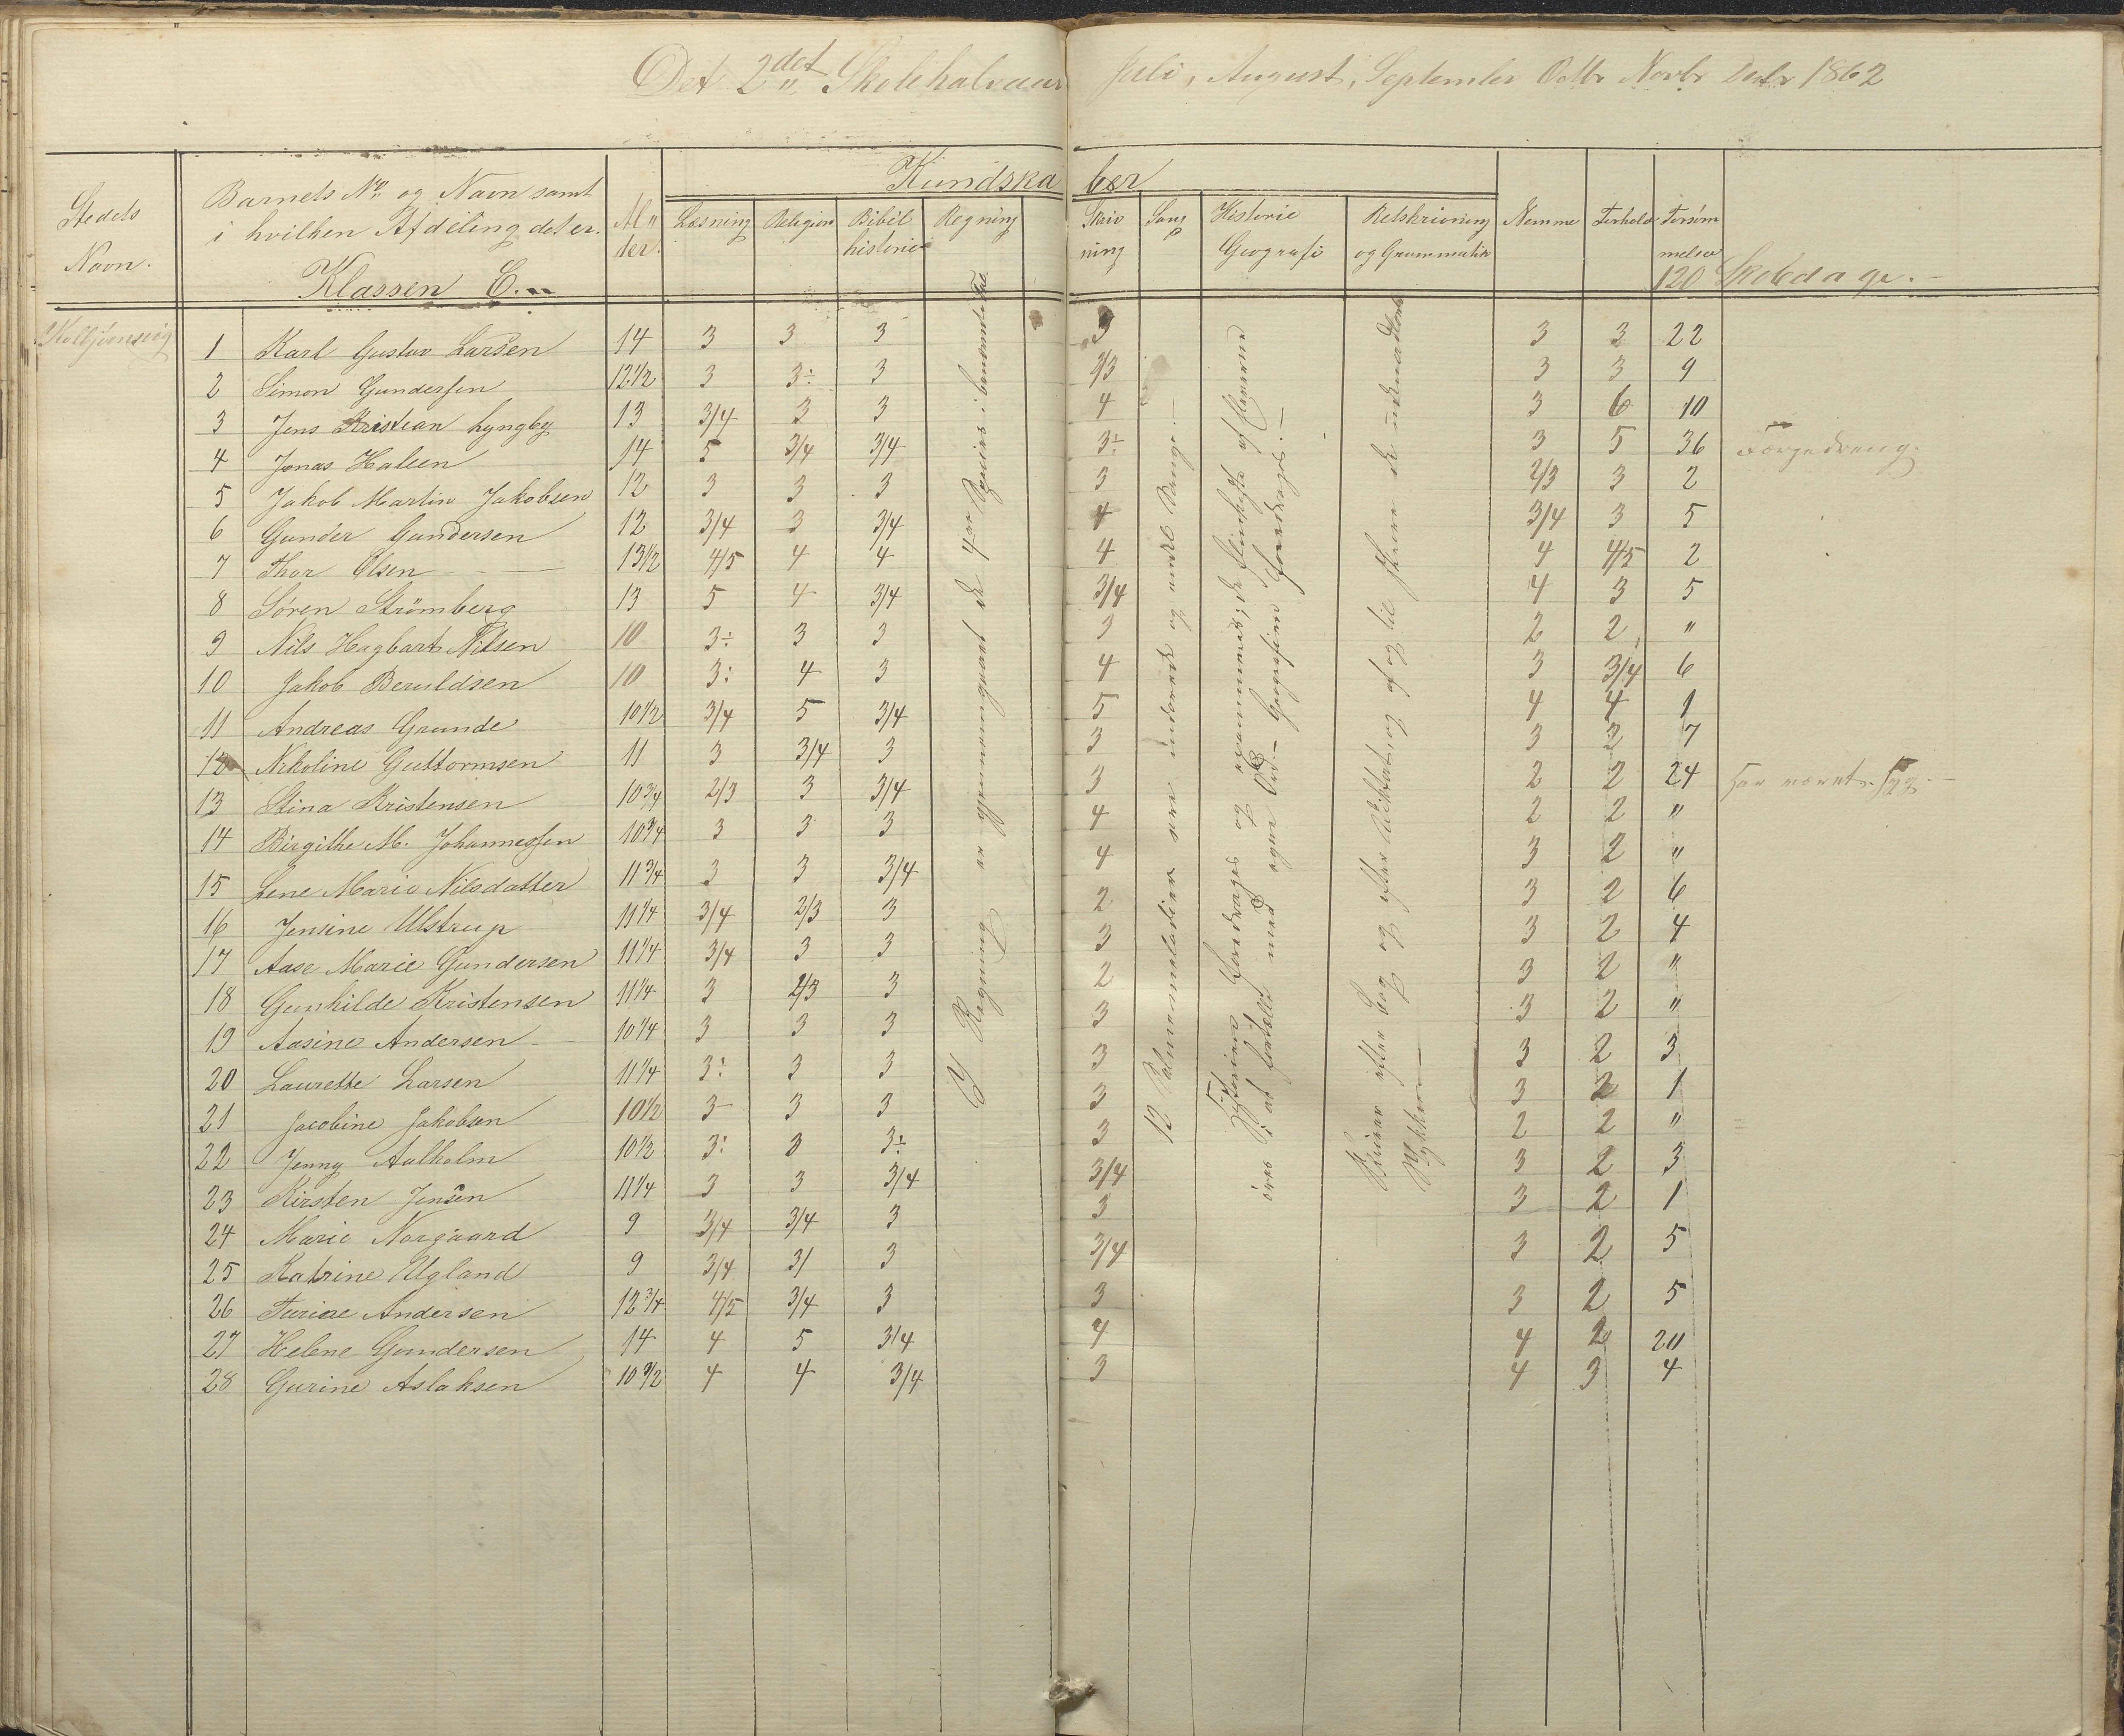 Det 2det Skolehalvaar Juli, August, September Octbr Novbr Decbr 1862
Kundskaber
Stedets Navn. Barnets No og Navn samt i hvilken Afdeling det er. Alder. Læsning Religion Bibelhistorie Regning Skrivning Sang Historie Geografi Retskrivning og Grammatik Nemme Forhold Forsømmelse
Klassen C. 120 Skoledage.
Kolbjørnsvig
1 Karl Gustav Larsen 14 3 3 3 3 3 3 22
2 Simon Gundersen 12 1/2 3 3÷ 3 2/3 3 3 9
3 Jens Kristian Lyngbye 13 3/4 3 3 4 3 6 10
4 Jonas Halsen 14 5 3/4 3/4 3÷ 3 5 36 Forgedreng.
5 Jakob Martin Jakobsen 12 3 3 3 3 2/3 3 2
6 Gunder Gundersen 12 3/4 3 3/4 4 3/4 3 5
7 Thor Olsen 13 1/2 4/5 4 4 4 4 4/5 2
8 Søren Strömberg 13 5 4 3/4 3/4 4 3 5
9 Nils Hagbart Nilsen 10 3÷ 3 3 3 2 2 "
10 Jakob Beruldsen 10 3: 4 3 4 3 3/4 6
11 Andreas Grunde 10 1/2 3/4 5 3/4 5 4 4 1
12 Nikoline Guttormsen 11 3 3/4 3 3 3 2 7
13 Stina Kristensen 10 3/4 2/3 3 3/4 3 2 2 24 Har været syg.
14 Birgithe M. Johannessen 10 3/4 3 3 3 4 2 2 "
15 Lene Marie Nilsdatter 11 3/4 3 3 3/4 4 3 2 "
16 Jensine Ulstrup 11 1/4 3/4 2/3 3 2 3 2 6
17 Aase Marie Gundersen 11 1/4 3/4 3 3 3 3 2 4
18 Gunhilde Kristensen 11 1/4 3 2/3 3 2 3 2 "
19 Aasine Andersen 10 1/4 3 3 3 3 3 2 "
20 Laurette Larsen 11 1/4 3: 3 3 3 3 2 3
21 Jacobine Jakobsen 10 1/2 3 3 3 3 3 2 1
22 Jenny Aalholm 10 1/2 3: 3 3÷ 3 2 2 "
23 Kirsten Jensen 11 1/4 3 3 3/4 3/4 3 2 3
24 Marie Norgaard 9 3/4 3/4 3 3 3 2 1
25 Katrine Ugland 9 3/4 3/ 3 3/4 3 2 5
26 Turine Andersen 12 3/4 4/5 3/4 3 3 3 2 5
27 Helene Gundersen 14 4 5 3/4 4 4 2 20
28 Gurine Aslaksen 10 1/2 4 4 3/4 3 4 3 4
I Regning er gjennemgaaet de 4re Regnearter i benævnte Tal
12 Salmemelodier ere indøvede og andre Sange.
Historien foredrages og examineres; de flinkeste af Eleverne
øves i at fortælle med egne Ord. Geografien foredrages.
Skriver efter Bog og efter Diktat, og af og til skrive de udenadlærte
Stykker.